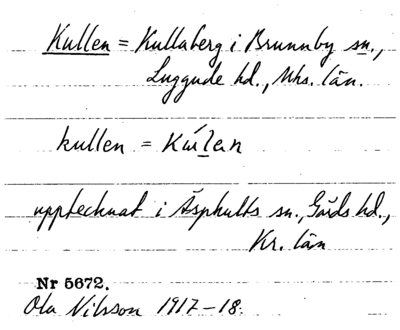 Kullen = Kullaberg i Brunnby sn.,
Luggude hd., Mhs. län.
kullen = Kúlen
upptecknat i Äsphults sn., Gärds hd.,
Kr. län
Nr 5672.
Ola Nilsson 1917-18.